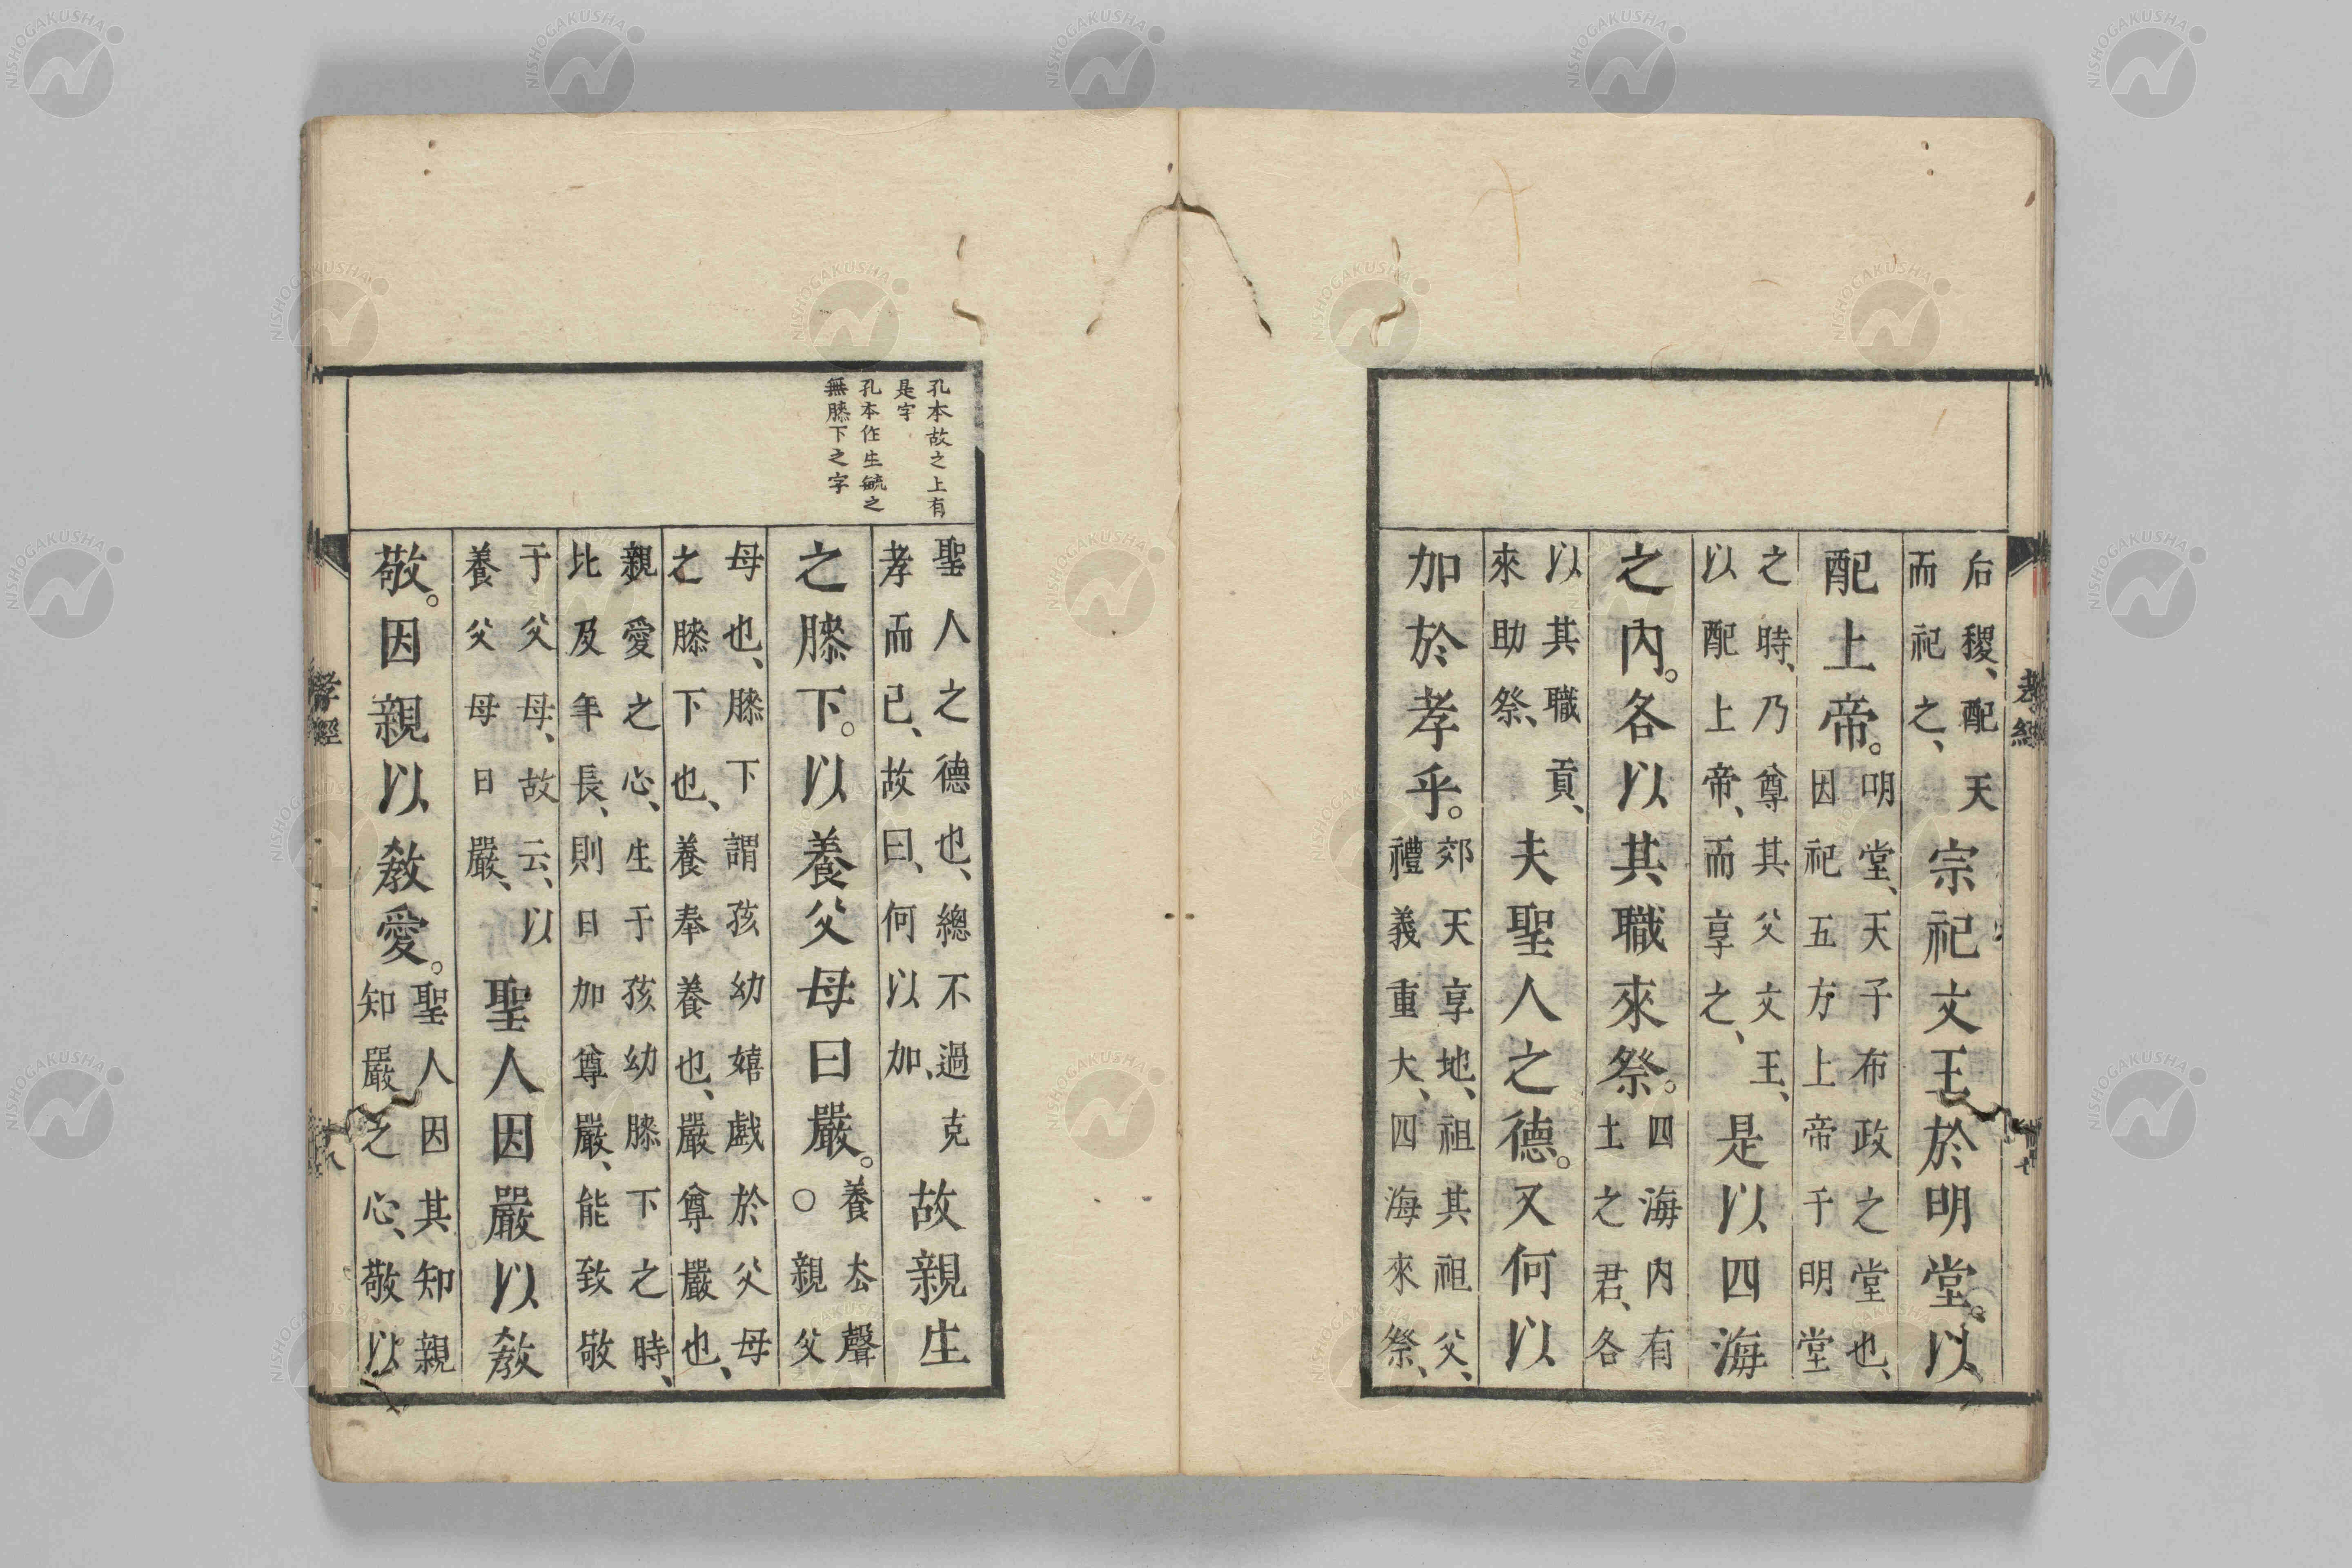 孝經
后稷、配天
而祀之、
宗祀文王於明堂。以
配上帝。
明堂、天子布政之堂也、
因祀五方上帝于明堂
之時、乃尊其父文王、
以配上帝、而享之、
是以四海
之內。各以其職來祭。
四海内有
土之君、各
以其職貢、
來助祭、
夫聖人之德。又何以
加於孝乎。
郊天享地、祖其祖父、
禮義重大、四海來祭、
孔本故之上有
是字
孔本作生毓之
無膝下之字
聖人之德也、總不過克
孝而已、故曰、何以加、
故親生
之膝下。以養父母曰嚴。
養去聲
○親父
母也、膝下謂孩幼嬉戲於父母
之膝下也、養奉養也、嚴尊嚴也、
親愛之心、生于孩幼膝下之時、
比及年長、則日加尊嚴、能致敬
于父母、故云、以
養父母日嚴、
聖人因嚴以教
敬。因親以教愛。
聖人因其知親
知嚴之心、敬以
孝經
NISHOGAKUSHA